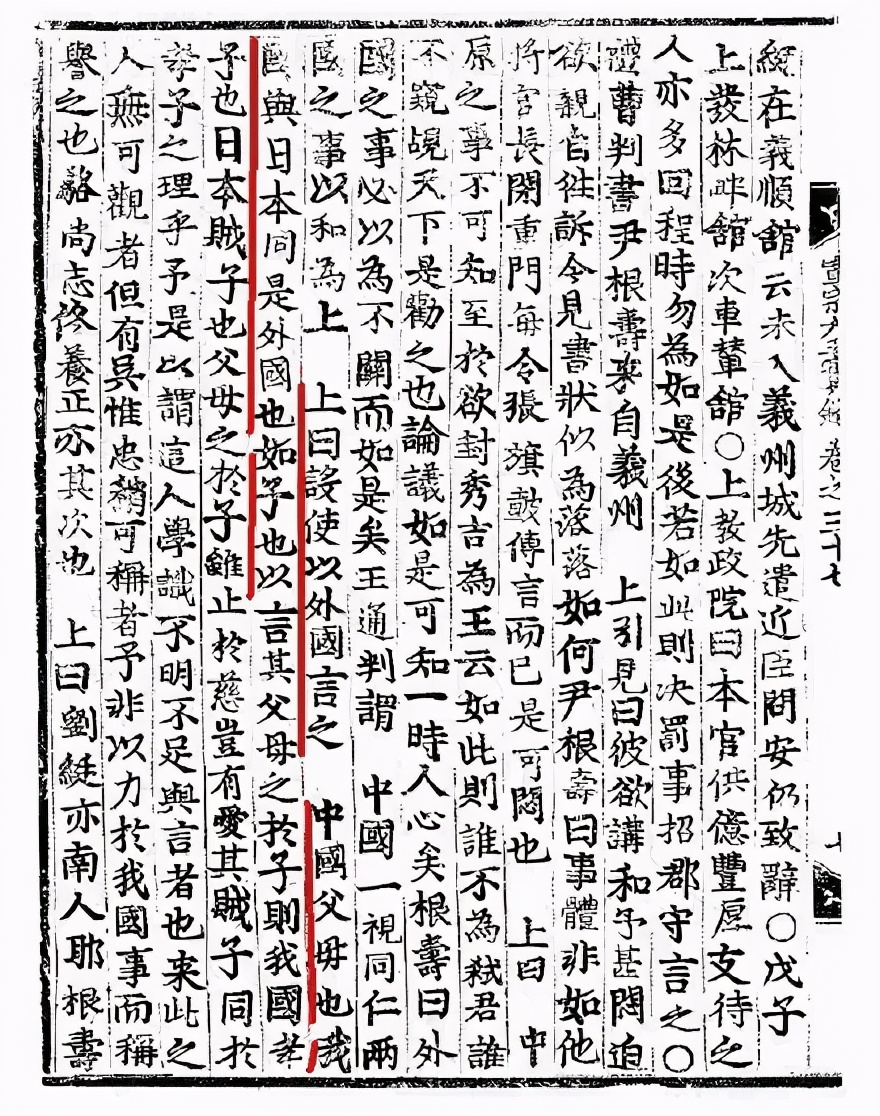 宣宗大王實錄卷之三十七
綎在義順館云未入義州城先遣近臣問安仍致辭○戊子
上發林畔館次車輦館○上敎政院曰本官供億豐厚支待之
人亦多回程時勿爲如是後若如此則決罰事招郡守言之○
禮曹判書尹根壽來自義州　上引見曰彼欲講和予甚悶迫
欲親自往訴今見書狀似爲落落如何尹根壽曰事體非如他
將官長閉重門每令張旗鼓傳言而已是可悶也　上曰　中
原之事不可知至於欲封秀吉爲王云如此則誰不爲弑君誰
不窺覘天下是勸之也論議如是可知一時人心矣根壽曰外
國之事必以爲不關而如是矣王通判謂　中國一視同仁兩
國之事以和爲上　上曰設使以外國言之　中國父母也我
國與日本同是外國也如子也以言其父母之於子則我國孝
子也日本賊子也父母之於子雖止於慈豈有愛其賊子同於
孝子之理乎予是以謂這人學識不明不足與言者也來此之
人無可觀者但有吳惟忠稍可稱者予非以力於我國事而稱
譽之也駱尚志修養正亦其次也　上曰劉綎亦南人耶根壽